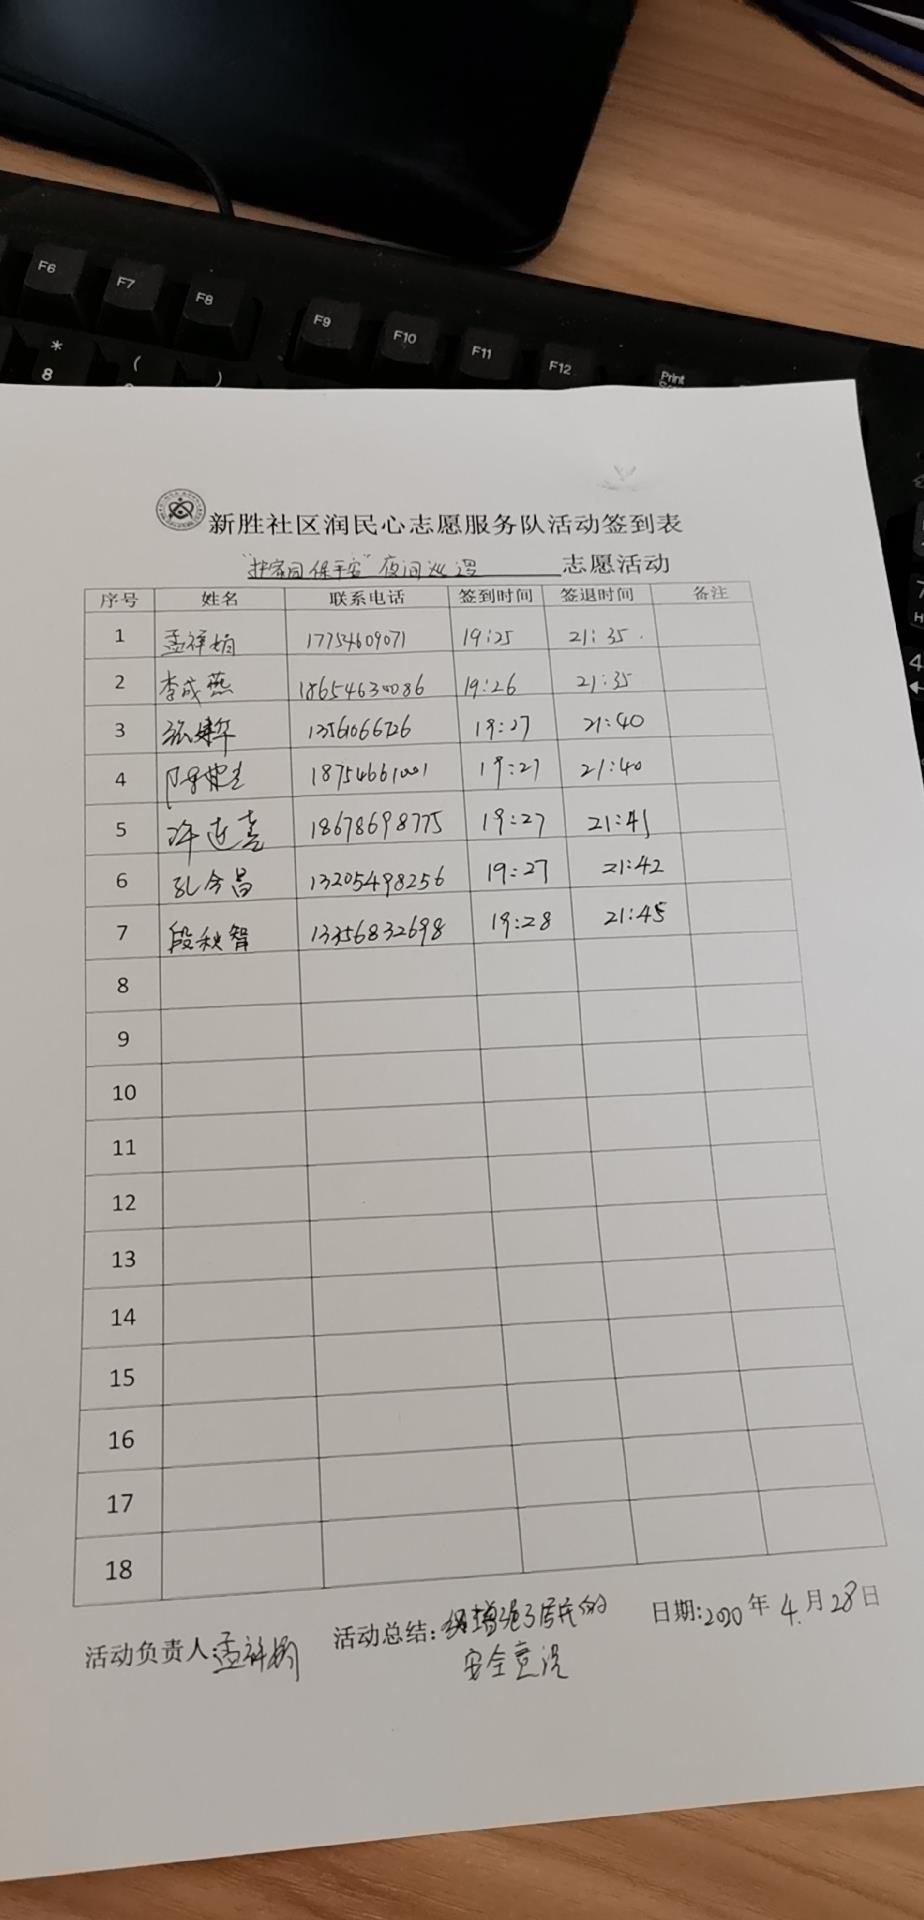 F6 F7 F8 F9 F10 F11 F12 Print
* ( )
8
新胜社区润民心志愿服务队活动签到表
“护家园保平安”夜间巡逻 志愿活动
序号 姓名 联系电话 签到时间 签退时间 备注
1 孟祥娟 17754609071 19:25 21:35
2 李成燕 18654630086 19:26 21:35
3 13561066726 19:27 21:40
4 18754661001 19:27 21:40
5 许连喜 18678698775 19:27 21:41
6 孔令昌 13205498256 19:27 21:42
7 段秋智 13356832698 19:28 21:45
8
9
10
11
12
13
14
15
16
17
18
活动负责人:孟祥娟 活动总结: 增强了居民的 日期:2020年4月28日
安全意识